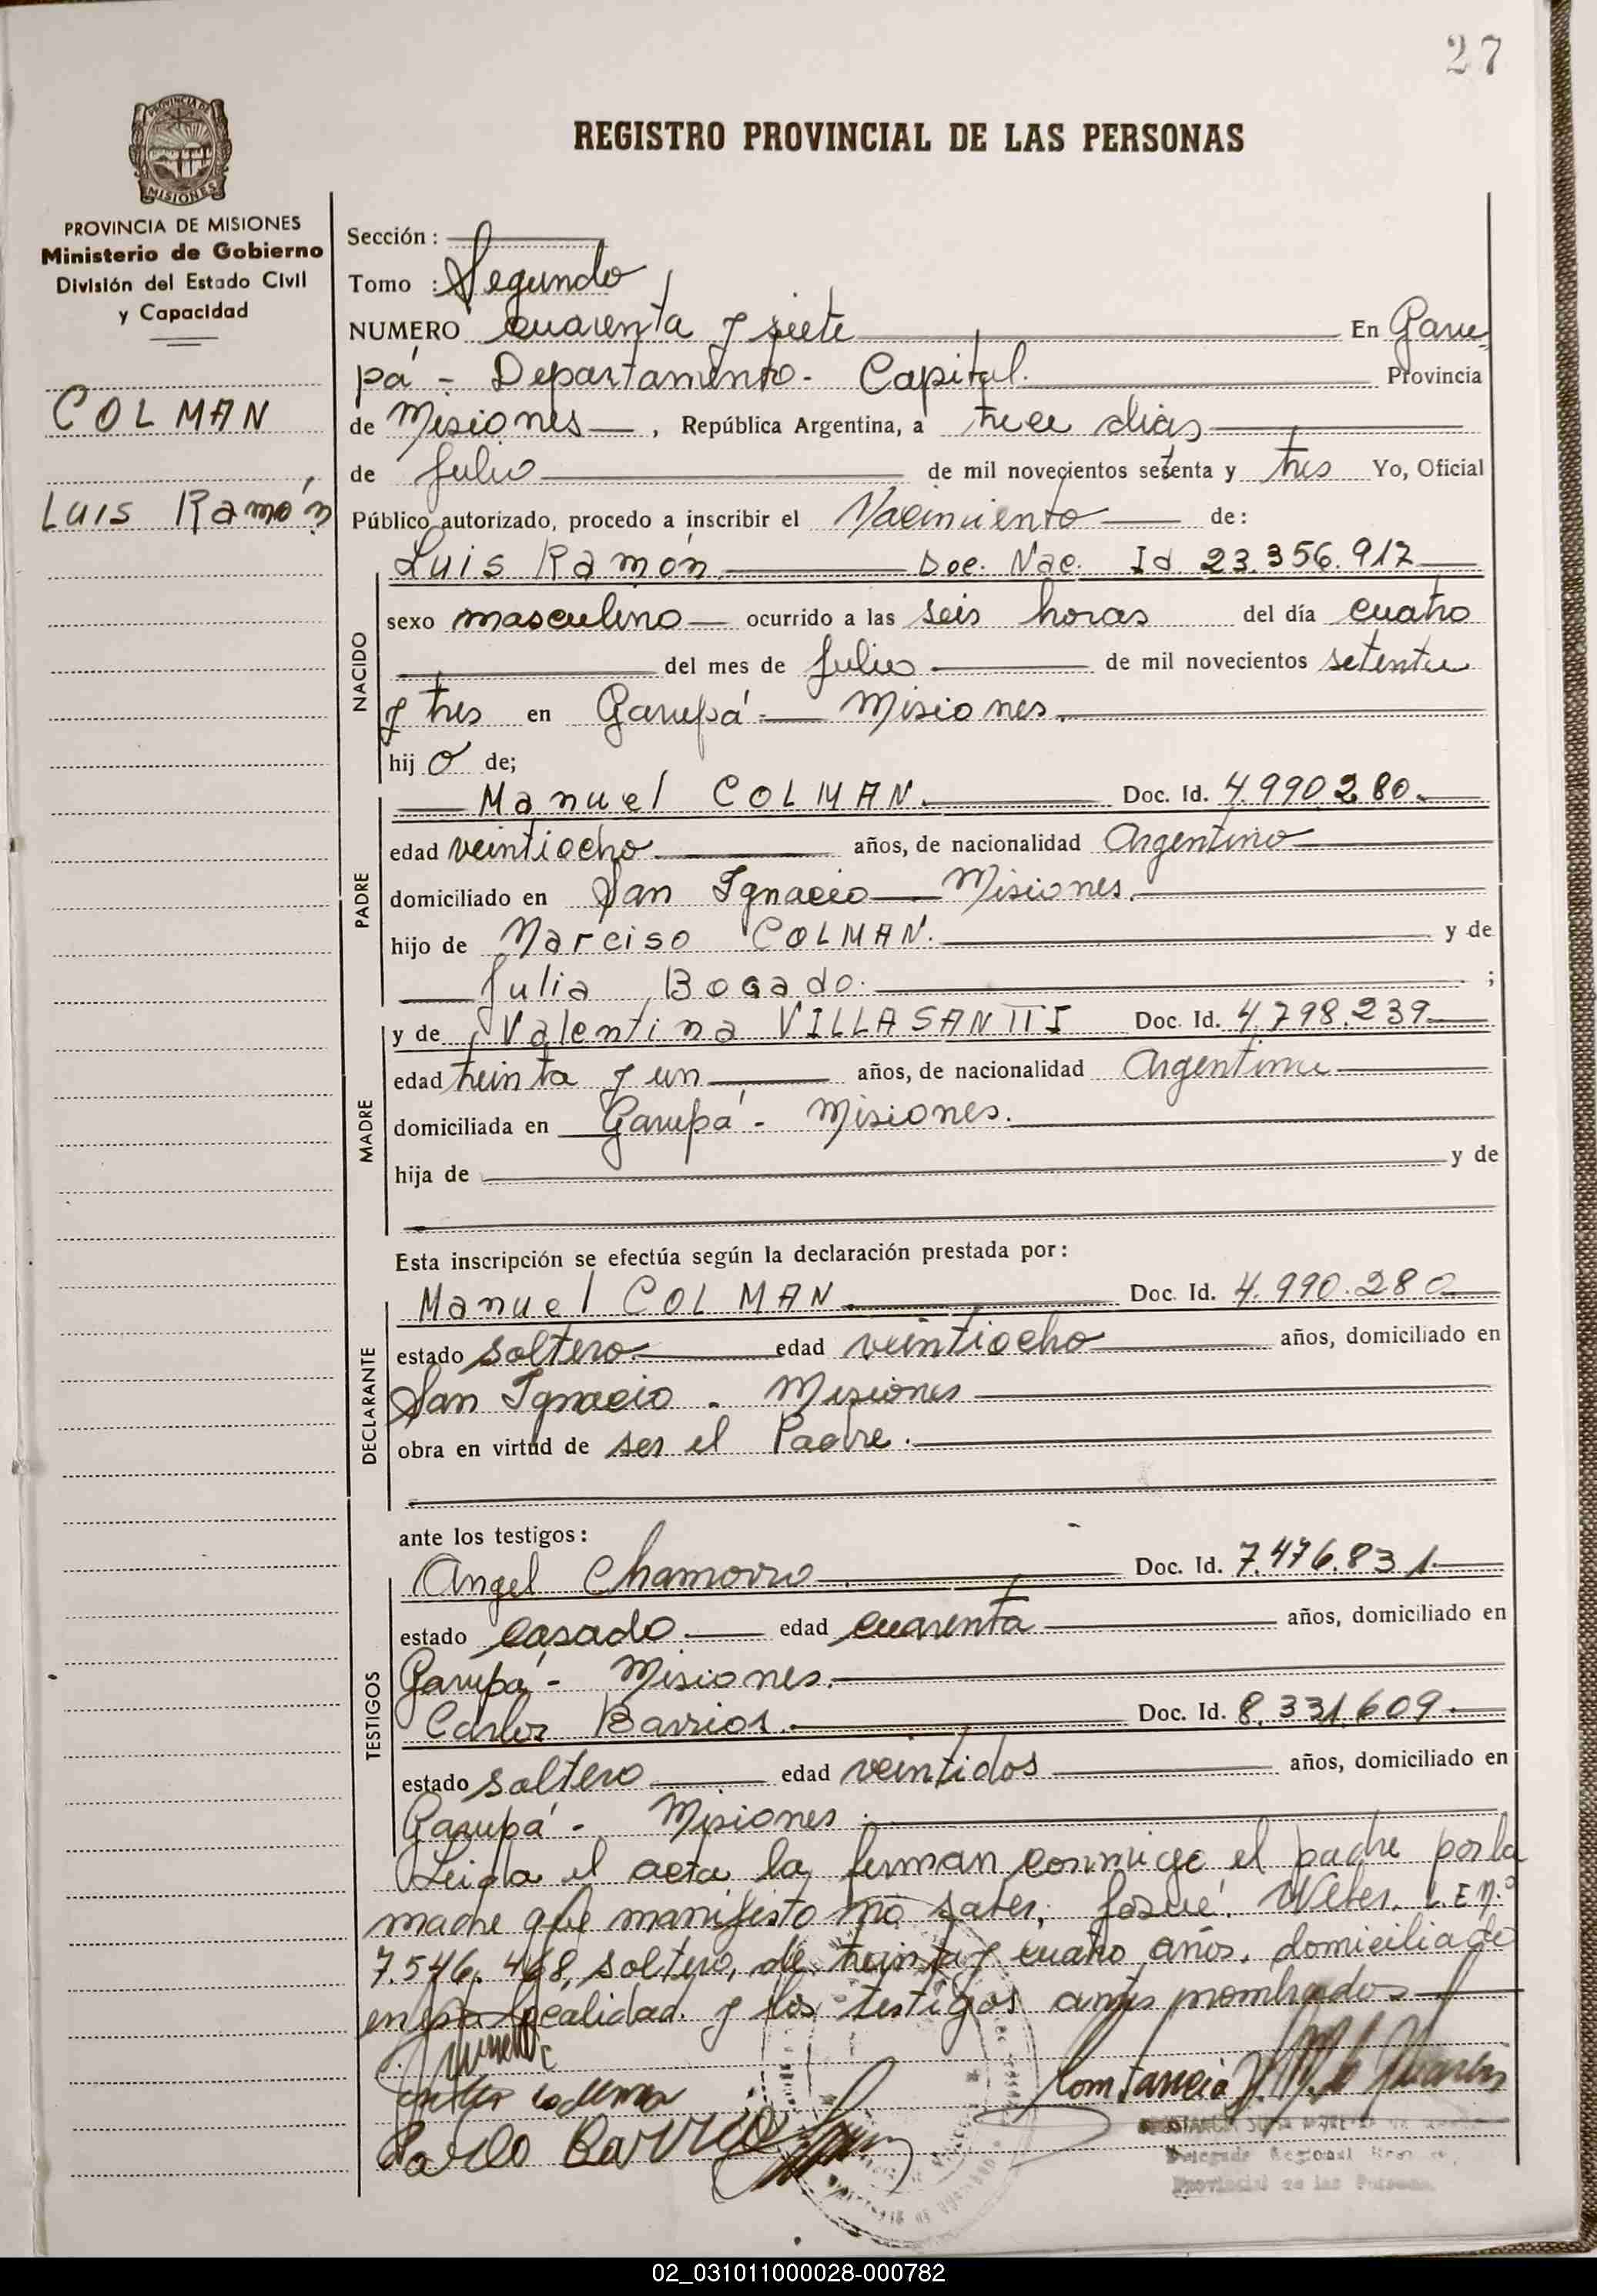 27
PROVINCIA DE
MISIONES
REGISTRO PROVINCIAL DE LAS PERSONAS
PROVINCIA DE MISIONES
Ministerio de Gobierno
División del Estado Civil
y Capacidad
COLMAN
Luis Ramón
Sección :
Tomo : Segundo
NUMERO cuarenta y siete En Garu
pá - Departamento - Capital. Provincia
de Misiones , República Argentina, a trece dias
de Julio de mil novecientos setenta y tres Yo, Oficial
Público autorizado, procedo a inscribir el Nacimiento de:
NACIDO
Luis Ramón Doc. Nac. Id 23.356.917
sexo masculino ocurrido a las seis horas del día cuatro
del mes de Julio de mil novecientos setenta
y tres en Garupá - Misiones.
hij o de;
PADRE
Manuel COLMAN. Doc. Id. 4.990.280.
edad veintiocho años, de nacionalidad Argentino
domiciliado en San Ignacio Misiones.
hijo de Narciso COLMAN. y de
Julia Bogado. ;
MADRE
y de Valentina VILLASANTTI Doc. Id. 4.798.239
edad treinta y un años, de nacionalidad Argentina
domiciliada en Garupá - Misiones.
hija de y de
Esta inscripción se efectúa según la declaración prestada por :
DECLARANTE
Manuel COLMAN Doc. Id. 4.990.280
estado soltero edad veintiocho años, domiciliado en
San Ignacio - Misiones
obra en virtud de ser el Padre.
ante los testigos :
TESTIGOS
Angel Chamorro Doc. Id. 7.476.831
estado casado edad cuarenta años, domiciliado en
Garupá - Misiones.
Carlos Barrios. Doc. Id. 8.331.609
estado soltero edad veintidos años, domiciliado en
Garupá - Misiones.
Leida el acta la firman conmigo el padre por la
madre que manifesto no saber, Josué Weber. L.E.N.º
7.546.468, soltero, de treinta y cuatro años, domiciliado
en esta localidad. y los testigos antes nombrados
Carlo Barrio
Constancia
Delegada Regional
Provincial de las Personas
02_031011000028-000782